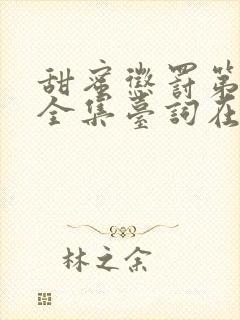 甜蜜懲罰第
全集臺詞在
林之余